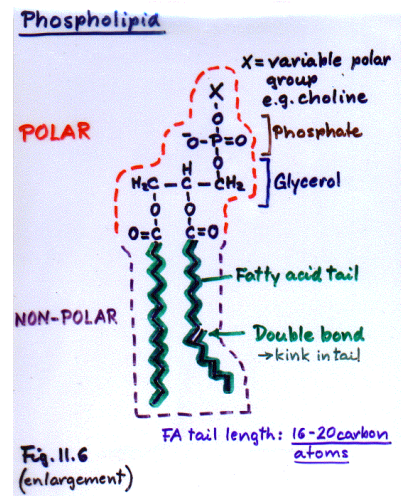 Phospholipid
X = variable polar
group
e.g. choline
X
O
⁻O-P=O
Phosphate
POLAR
O
H
H₂C - C - CH₂
Glycerol
O O
O=C C=O
Fatty acid tail
NON-POLAR
Double bond
→kink in tail
FA tail length: 16-20 carbon
atoms
Fig. 11.6
(enlargement)